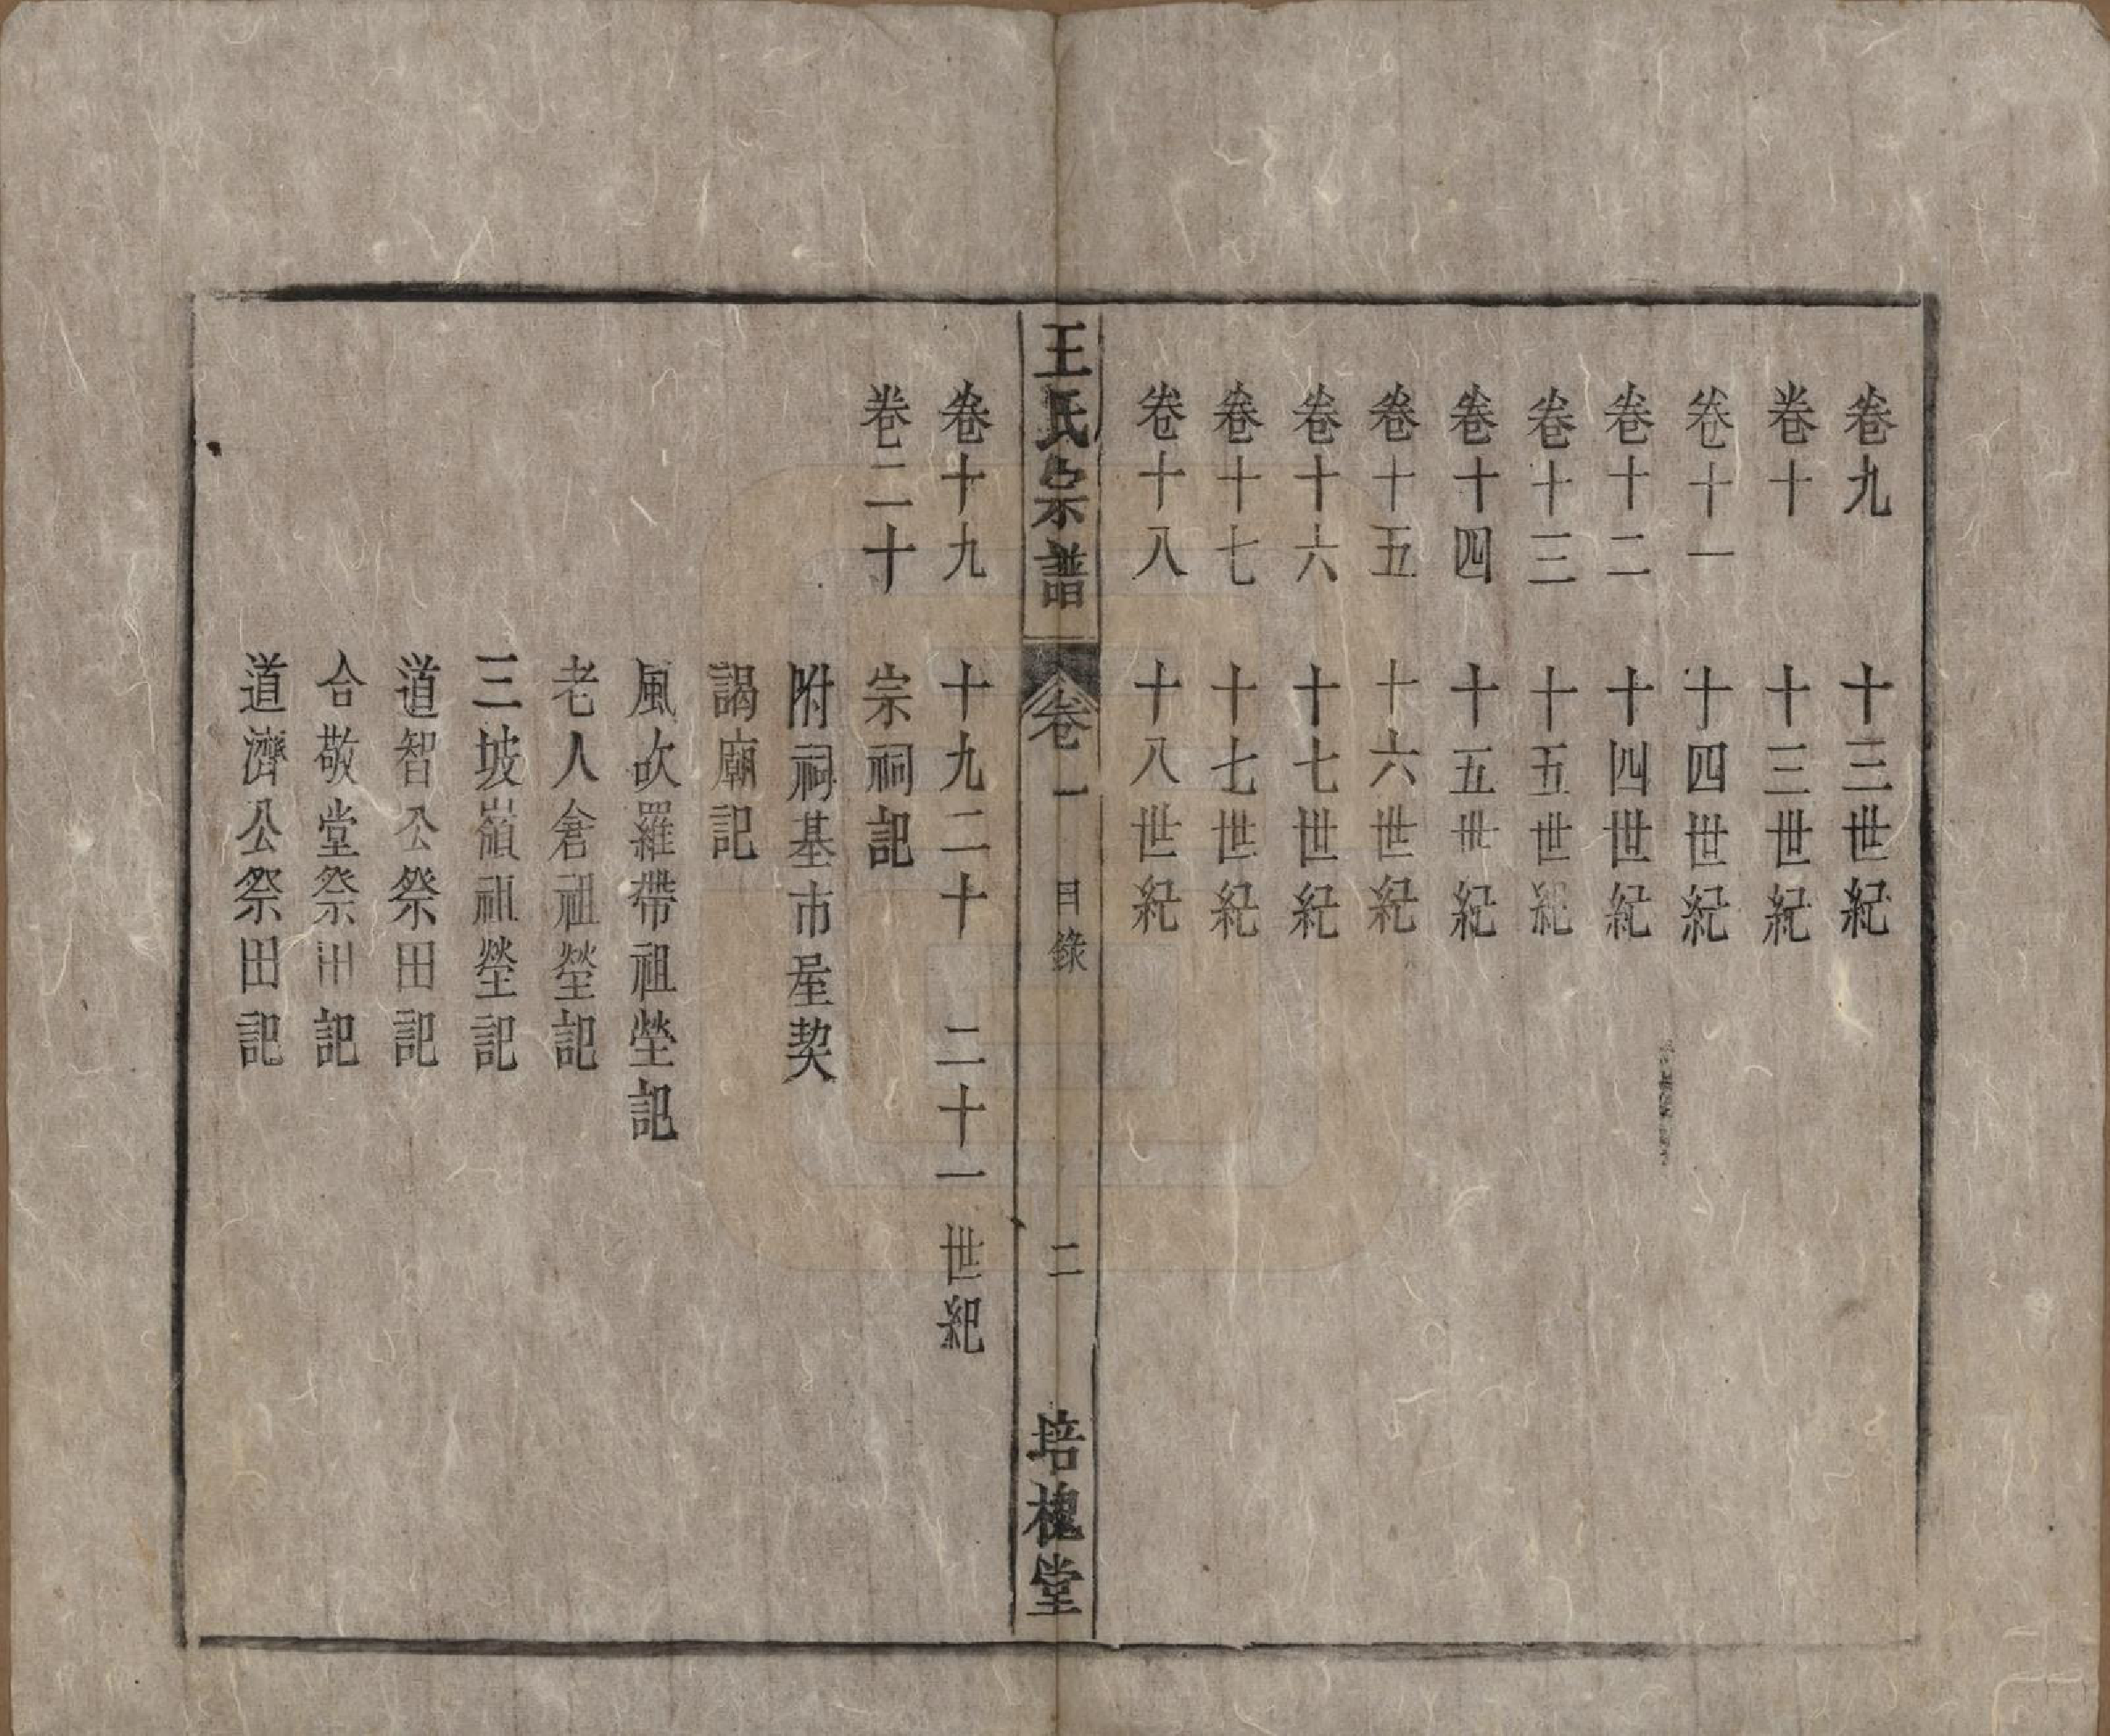 卷九　十三世紀
卷十　十三世紀
卷十一　十四世紀
卷十二　十四世紀
卷十三　十五世紀
卷十四　十五世紀
卷十五　十六世紀
卷十六　十七世紀
卷十七　十七世紀
卷十八　十八世紀
王氏宗譜　卷一　目錄　二　培槐堂
卷十九　十九二十　二十一世紀
卷二十　宗祠記
附祠基市屋契
謁廟記
風吹羅帶祖塋記
老人倉祖塋記
三坡嶺祖塋記
道智公祭田記
合敬堂祭田記
道濟公祭田記